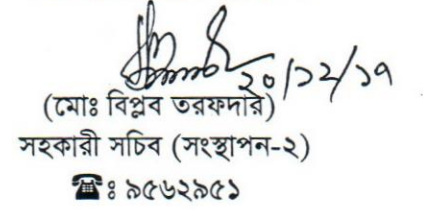 ২০/১২/১৭
(মোঃ বিপ্লব তরফদার)
সহকারী সচিব (সংস্থাপন-২)
☎ঃ ৯৫৬২৯৫১